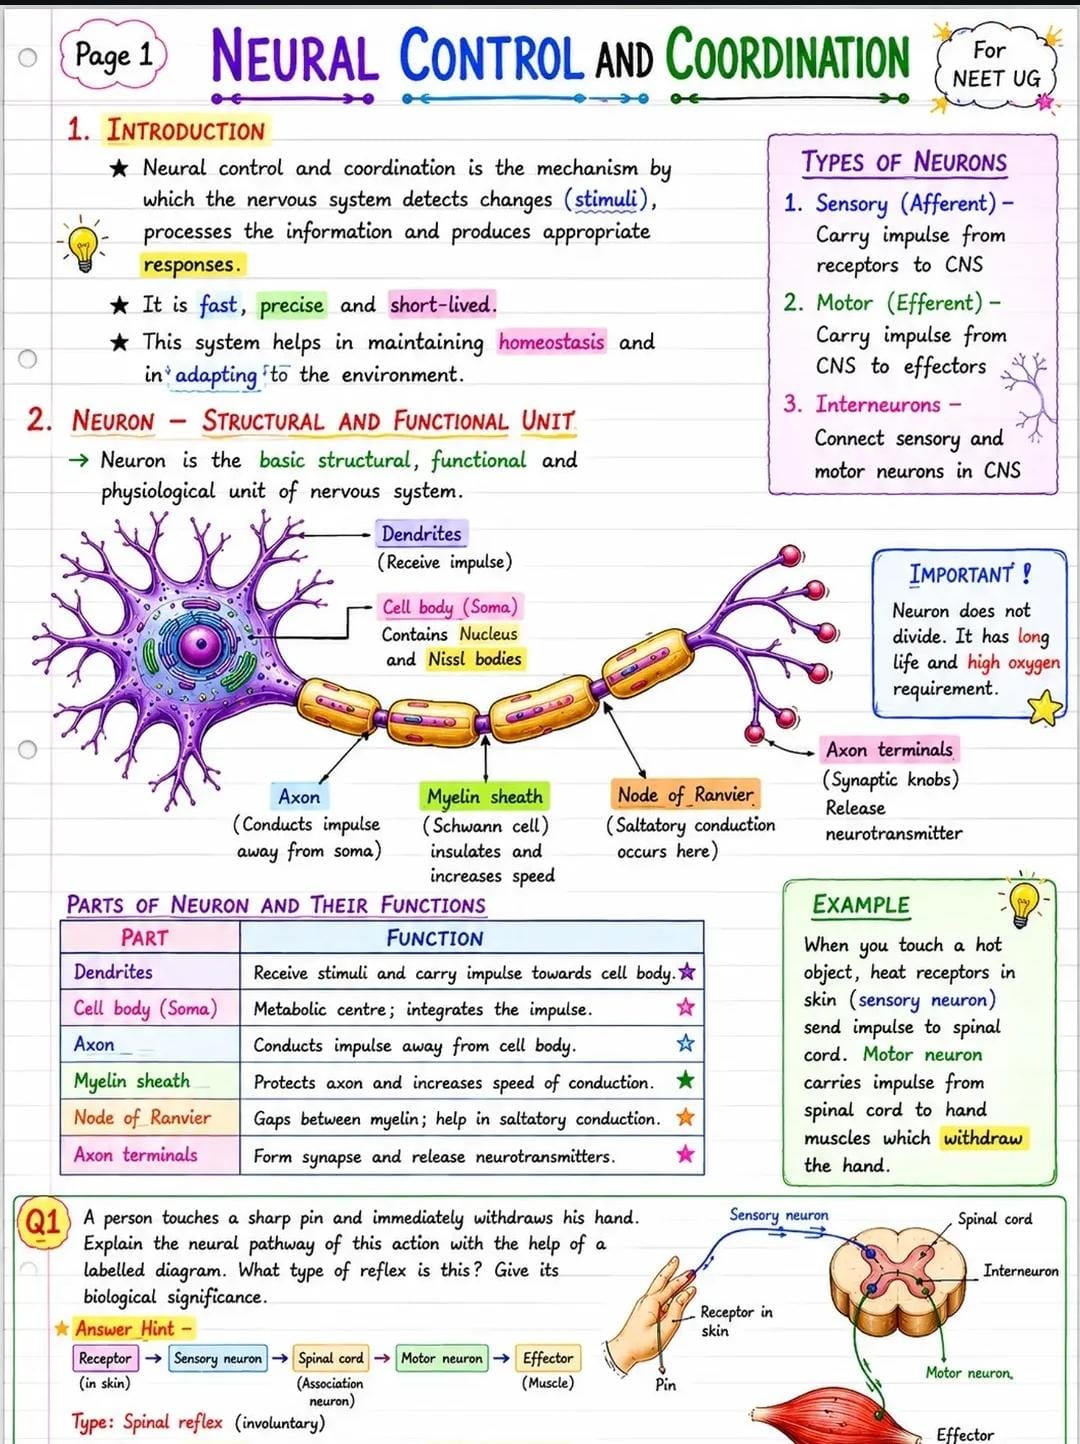 Page 1
NEURAL CONTROL AND COORDINATION
For
NEET UG
1. INTRODUCTION
★ Neural control and coordination is the mechanism by
which the nervous system detects changes (stimuli),
processes the information and produces appropriate
responses.
★ It is fast, precise and short-lived.
★ This system helps in maintaining homeostasis and
in adapting to the environment.
TYPES OF NEURONS
1. Sensory (Afferent) –
Carry impulse from
receptors to CNS
2. Motor (Efferent) –
Carry impulse from
CNS to effectors
3. Interneurons –
Connect sensory and
motor neurons in CNS
2. NEURON – STRUCTURAL AND FUNCTIONAL UNIT
→ Neuron is the basic structural, functional and
physiological unit of nervous system.
Dendrites
(Receive impulse)
Cell body (Soma)
Contains Nucleus
and Nissl bodies
IMPORTANT !
Neuron does not
divide. It has long
life and high oxygen
requirement.
Axon
(Conducts impulse
away from soma)
Myelin sheath
(Schwann cell)
insulates and
increases speed
Node of Ranvier
(Saltatory conduction
occurs here)
Axon terminals
(Synaptic knobs)
Release
neurotransmitter
PARTS OF NEURON AND THEIR FUNCTIONS
PART FUNCTION
Dendrites Receive stimuli and carry impulse towards cell body. ★
Cell body (Soma) Metabolic centre; integrates the impulse. ☆
Axon Conducts impulse away from cell body. ☆
Myelin sheath Protects axon and increases speed of conduction. ★
Node of Ranvier Gaps between myelin; help in saltatory conduction. ★
Axon terminals Form synapse and release neurotransmitters. ★
EXAMPLE
When you touch a hot
object, heat receptors in
skin (sensory neuron)
send impulse to spinal
cord. Motor neuron
carries impulse from
spinal cord to hand
muscles which withdraw
the hand.
Q1 A person touches a sharp pin and immediately withdraws his hand.
Explain the neural pathway of this action with the help of a
labelled diagram. What type of reflex is this? Give its
biological significance.
★ Answer Hint –
Receptor → Sensory neuron → Spinal cord → Motor neuron → Effector
(in skin) (Association (Muscle)
neuron)
Type: Spinal reflex (involuntary)
Sensory neuron
Spinal cord
Interneuron
Receptor in
skin
Pin
Motor neuron
Effector